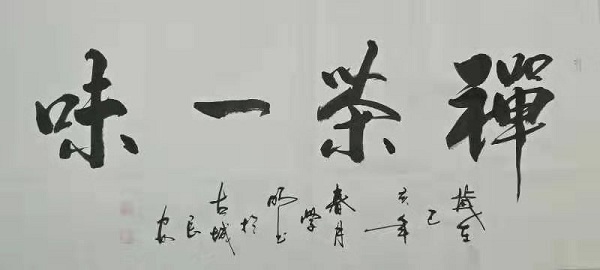 禪茶一味
歲在己亥年春月學明书於古城長安